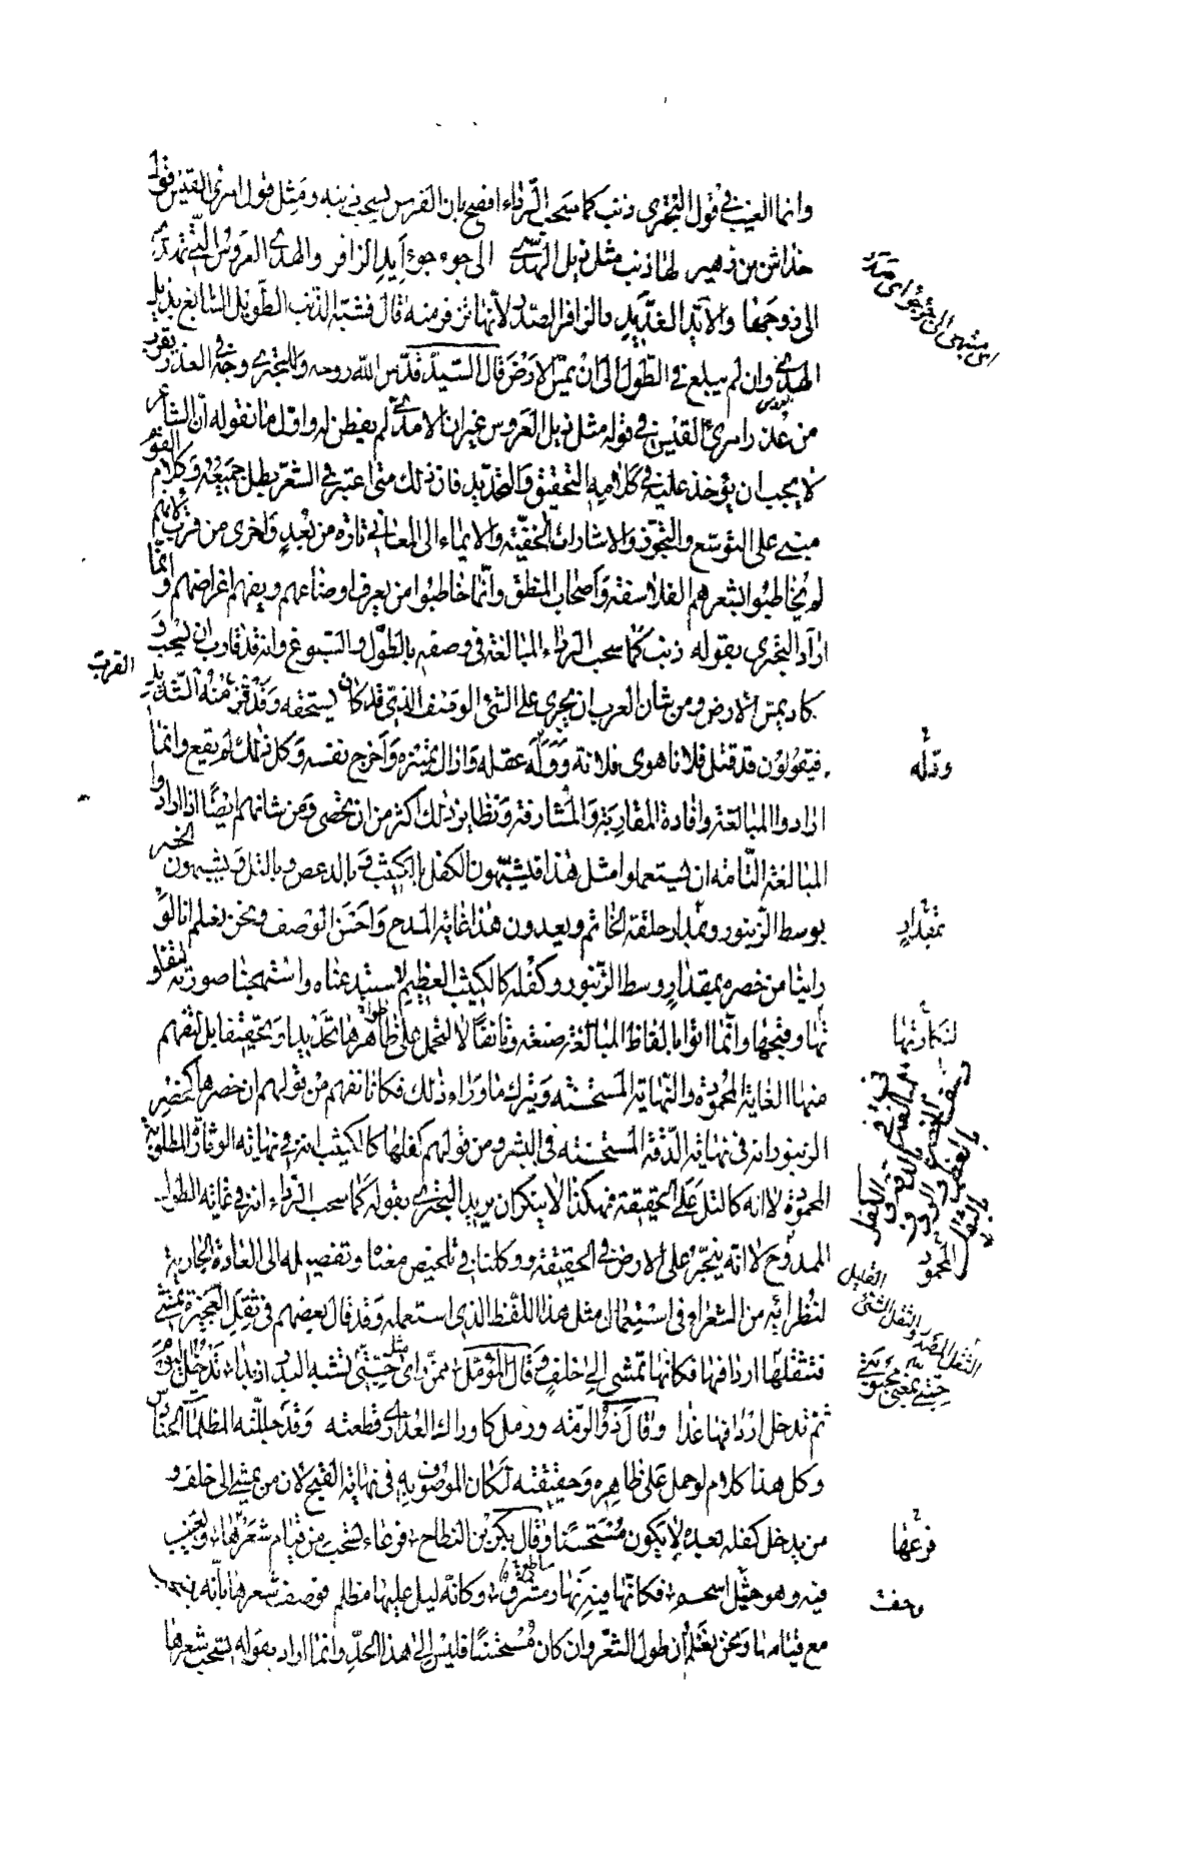 وانما العيب في قول البحتري ذنب كما سحب الرداء افصح بان الفرس يسحب ذنبه ومثل قول امرئ القيس قول
خداش بن زهير لها ذنب مثل ذيل الهديّ الى جوء جوء ايد الزافر والهديّ العروس التي تهدى
الى زوجها والايد الشديد والزافر الصدر لانها تزفر منه قال فشبه الذنب الطويل السابغ بذيل
الهدي وان لم يبلغ في الطول الى ان يمس الارض قال السيد قدس الله روحه وللبحتري وجه في العذر يقرب
من عذر امرئ القيس في قوله مثل ذيل العروس غير ان الامدي لم يفطن له واول ما نقوله ان الشاعر
لا يجب ان يؤخذ عليه في كلامه التحقيق والتحديد فان ذلك متى اعتبر في الشعر بطل جميعه وكلام القوم
مبني على التوسع والتجوز والاشارات الخفية والايماء الى المعاني تارة من بعد واخرى من قرب لانهم
لم يخاطبوا بشعرهم الفلاسفة واصحاب المنطق وانما خاطبوا من يعرف اوضاعهم ويفهم اغراضهم وانما
اراد البحتري بقوله ذنب كما سحب الرداء المبالغة في وصفه بالطول والسبوغ وانه قد قارب ان يسحب و
كاد يمس الارض ومن شان العرب ان يجري على الشئ الوصف الذي قد كان يستحقه وقد قرب منه الشديد
القرب
فيقولون قد قتل فلانا هوى فلانة ووله عقله وازال تمييزه واخرج نفسه وكل ذلك لم يقع وانما
ودله
ارادوا المبالغة وافادة المقاربة والمشارفة ونظاير ذلك اكثر من ان تحصى ومن شانهم ايضا اذا ارادوا
المبالغة التامة ان يستعملوا مثل هذا فيشبهون الكفل بالكثيب وبالدعص وبالتل ويشبهون الخصر
بوسط الزنبور وبمدار حلقة الخاتم ويعدون هذا غاية المدح واحسن الوصف ونحن نعلم انا لو
بمقدار
راينا من خصره بمقدار وسط الزنبور وكفله كالكثيب العظيم لاستبعدناه واستهجنا صورته لنفار
تها وقبحها وانما اتوا بالفاظ المبالغة صنعة وتانقا لا لتحمل على ظواهرها تحديدا وتحقيقا بل لتفهم
لنكارتها
منها الغاية المحمودة والنهاية المستحسنة ويترك ما وراء ذلك فكانا نفهم من قولهم ان خصرها كخصر
الزنبور انه في نهاية الدقة المستحسنة في البشر ومن قولهم كفلها كالكثيب انه في نهاية الوثارة المطلوبة
المحمودة لا انه كالتل على الحقيقة فهكذا لا ينكر ان يريد البحتري بقوله كما سحب الرداء انه في غاية الطول
الممدوح لا انه ينجر على الارض في الحقيقة ووكلنا في تلخيص معناه وتفصيله الى العادة الجارية
لنظرائه من الشعراء في استعمال مثل هذا اللفظ الذي استعمله وقد قال بعضهم في ثقل العجيزة تمشي
فتثقلها اردافها فكانها تمشي الى خلف وقال المؤمل من راى مثل حبتي تشبه البدر اذ بدا تدخل اليوم
ثم تدخل اردافها غدا وقال ذو الرمه ورمل كاوراك العذارى قطعته وقد جللته المظلمات الحنادس
وكل هذا كلام لو حمل على ظاهره وحقيقته لكان الموصوف به في نهاية القبح لان من يمشي الى خلف و
من يدخل كفله بعده لا يكون مستحسنا وقال بكر بن النطاح فرعاء تسحب من قيام شعرها وتغيب
فرعها
فيه وهو جثل اسحم فكانها فيه نهار مشرق وكانه ليل عليها مظلم فوصف شعرها بانه
وحف
مع قيامها ونحن نعلم ان طول الشعر وان كان مستحسنا فليس الى هذا الحد وانما اراد بقوله تسحب شعرها